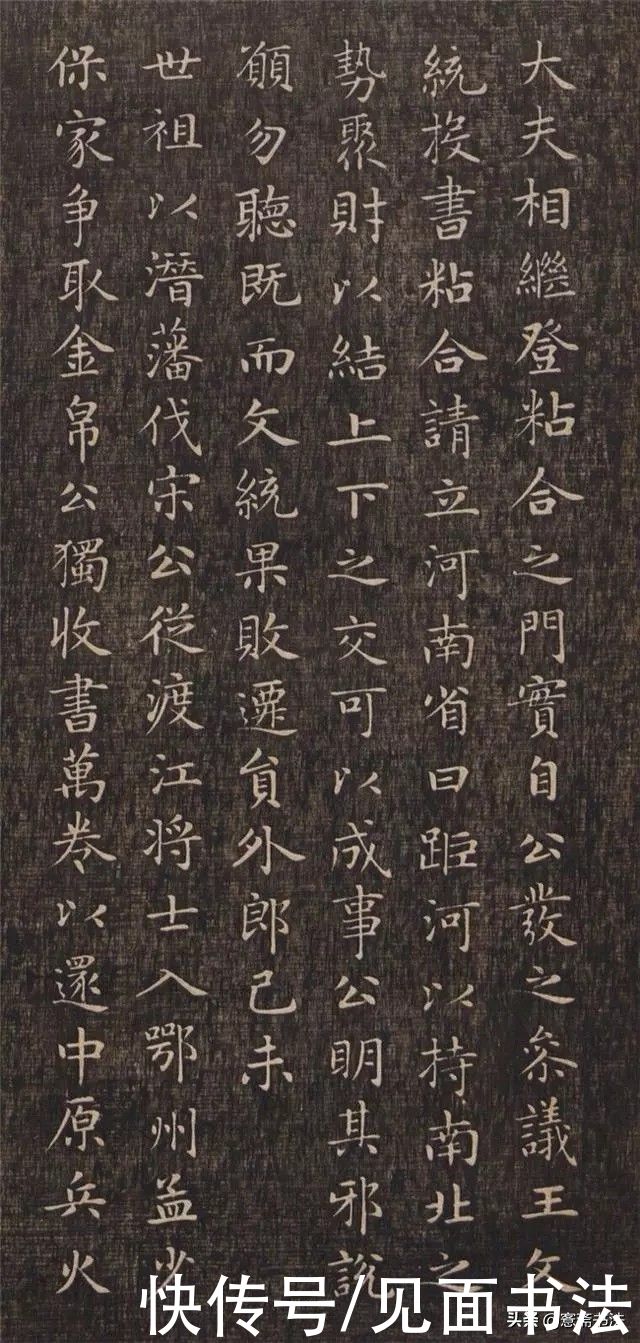 大夫相繼登粘合之門實自公發之叅議王文
統投書粘合請立河南省曰距河以持南北之
勢聚財以結上下之交可以成事公明其邪說
願勿聽既而文統果敗遷貟外郎己未
世祖以潛藩伐宋公從渡江将士入鄂州益少
保家争取金帛公獨收書萬卷以還中原兵火
快传号/见面书法
头条@愙斋书法